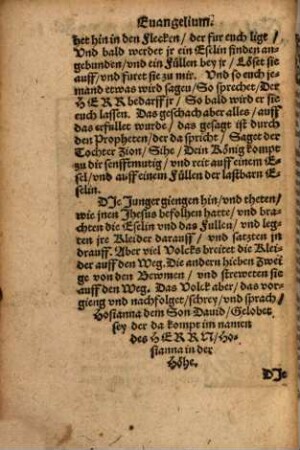 Euangelium.
het hin in den flecken / der fur euch ligt /
Vnd bald werdet jr ein Eselin finden an-
gebunden / vnd ein Füllen bey jr / Löset sie
auff / vnd füret sie zu mir. Vnd so euch je-
mand etwas wird sagen / So sprechet / Der
HERR bedarff jr / So bald wird er sie
euch lassen. Das geschach aber alles / auff
das erfullet wurde / das gesagt ist durch
den Propheten / der da spricht / Saget der
Tochter Zion / Sihe / Dein König kompt
zu dir senfftmutig / vnd reit auff einem E-
sel / vnd auff einem Füllen der lastbarn E-
selin.
DIe Junger giengen hin / vnd theten /
wie jnen Jhesus befolhen hatte / vnd bra-
chten die Eselin vnd das Fullen / vnd leg-
ten jre Kleider darauff / vnd satzten jn
drauff. Aber viel Volcks breitet die Klei-
der auff den Weg. Die andern hieben Zwei
ge von den Bewmen / vnd streweten sie
auff den Weg. Das Volck aber / das vor-
gieng vnd nachfolget / schrey / vnd sprach /
Hosianna dem Son Dauid / Gelobet
sey der da kompt im namen
des HERRN / Ho-
sianna in der
Höhe.
DIe